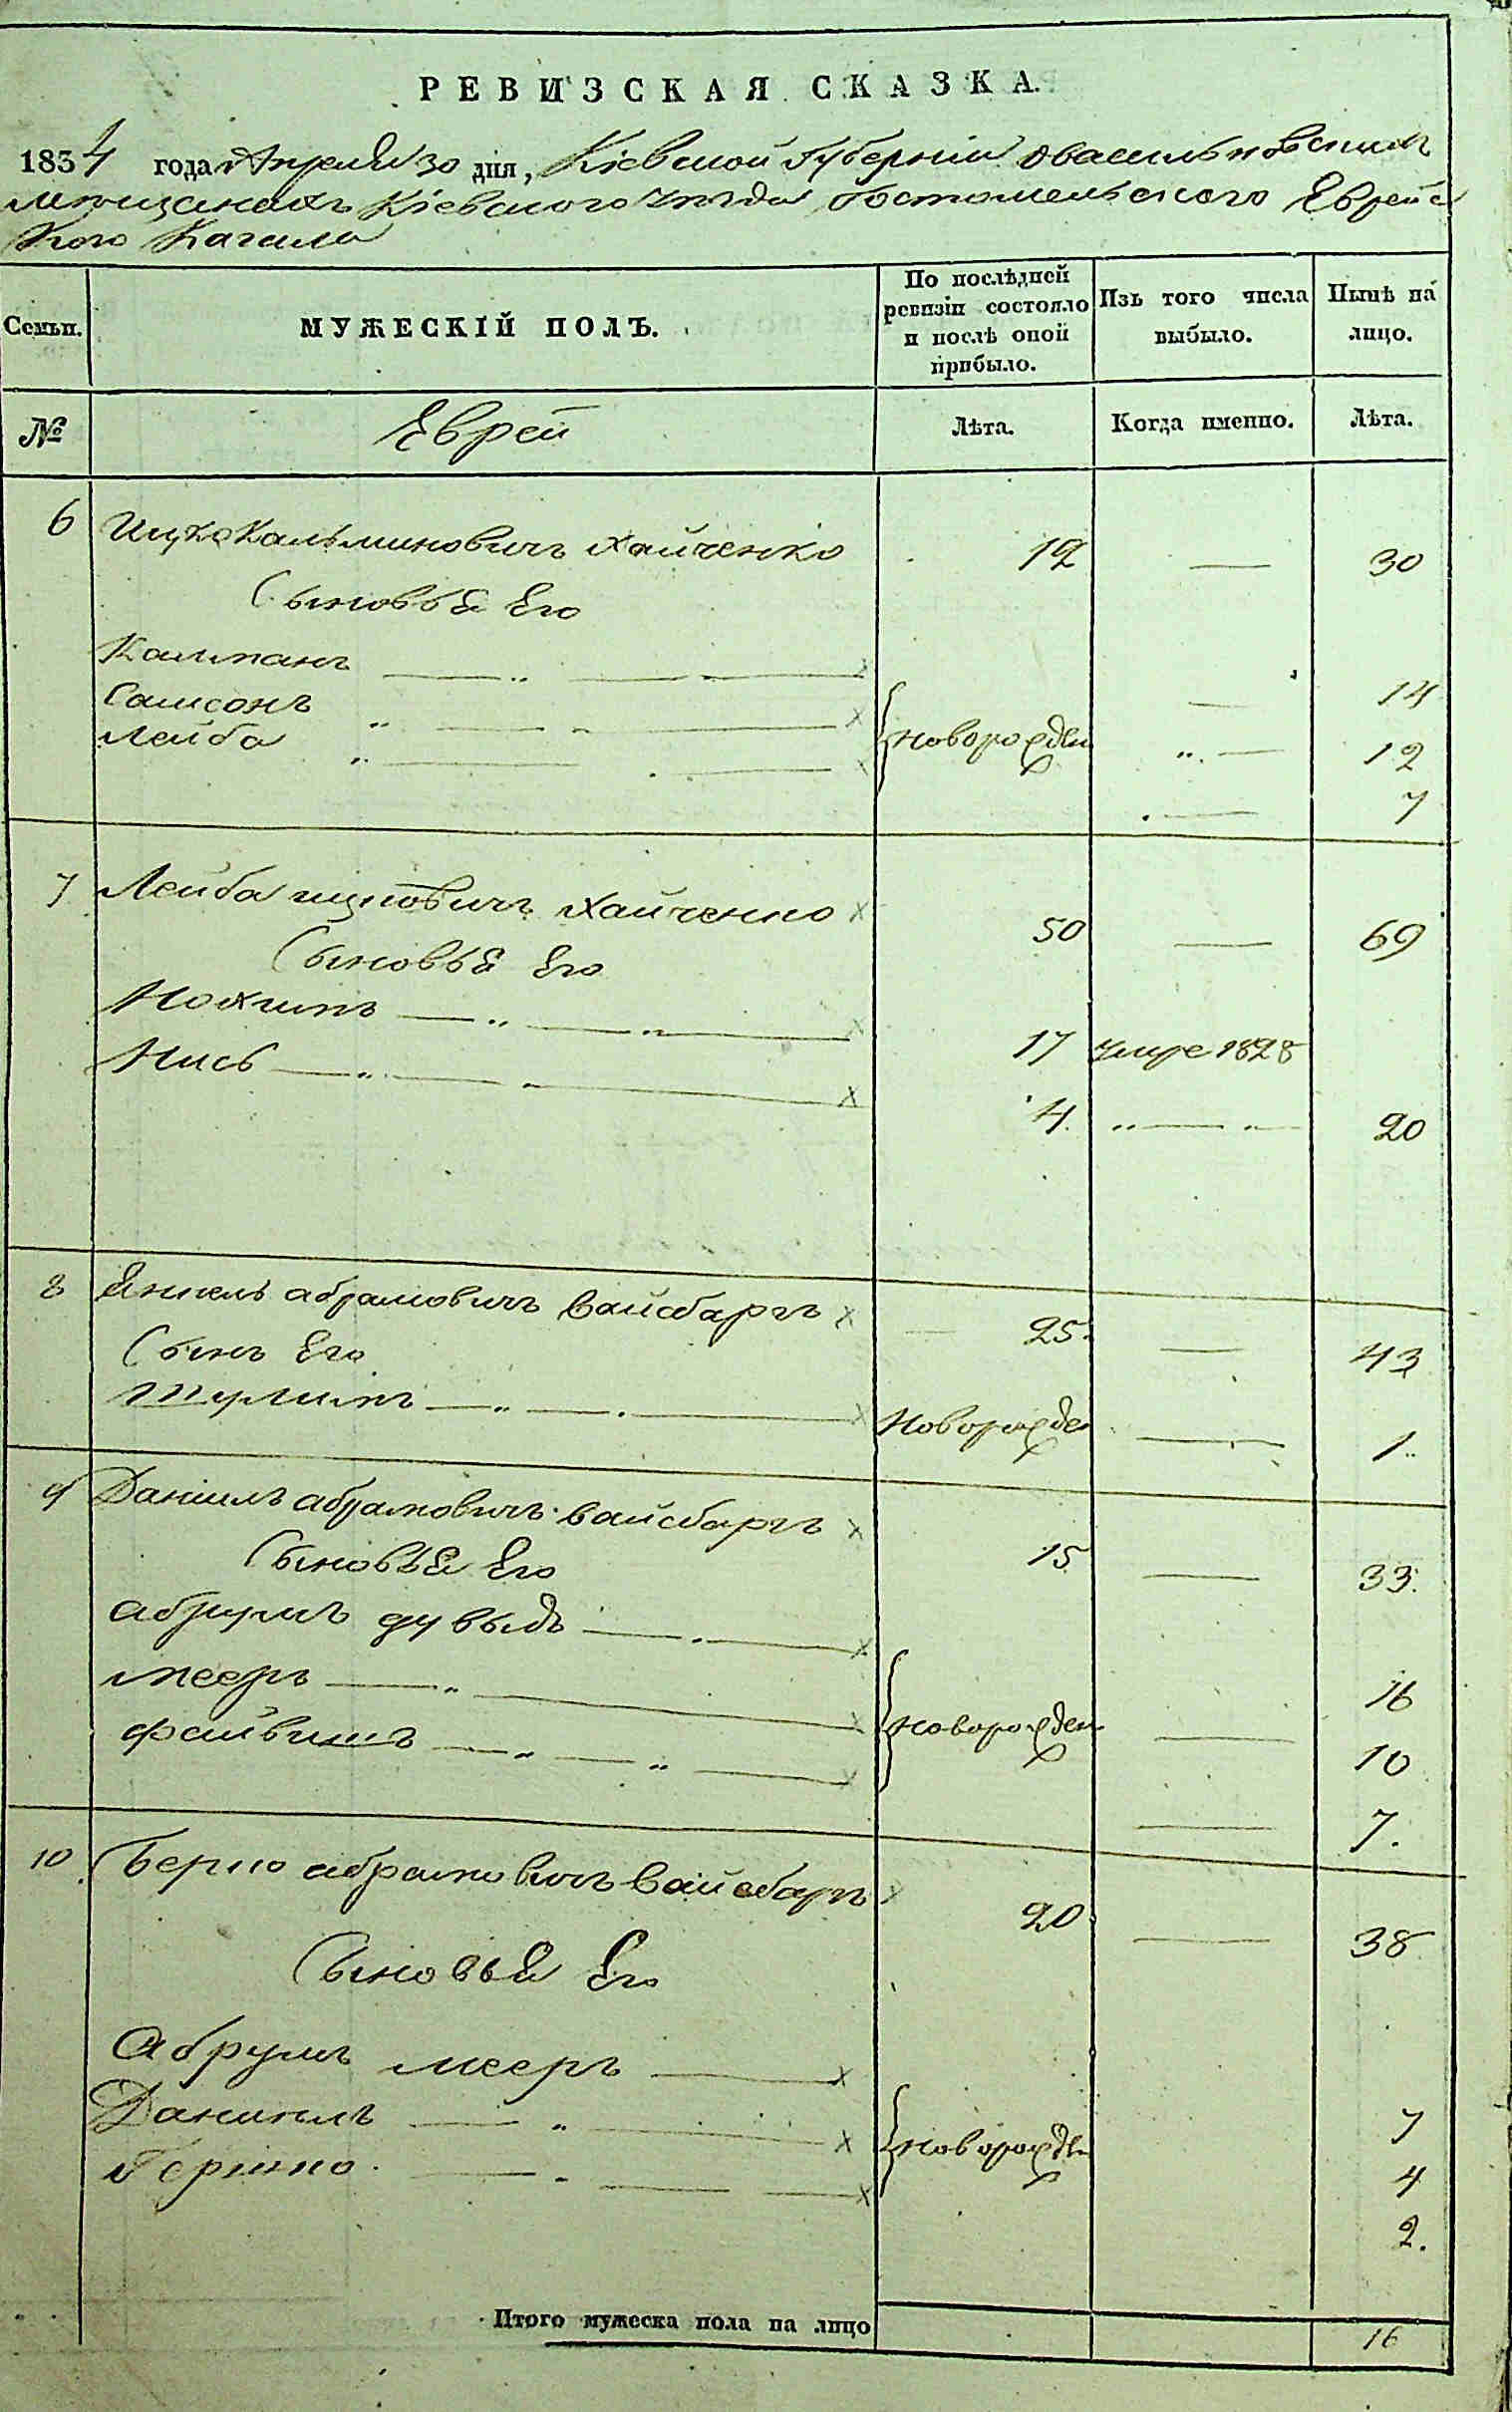 РЕВИЗСКАЯ СКАЗКА.
1834 года Апреля 30 дня, Кіевской Губерніи Овасильковскихъ
мещанахъ Кіевского уезда Гостомельского Еврейс
кого Кагала
Семьи.
МУЖЕСКІЙ ПОЛЪ.
По послѣдней ревизіи состояло и послѣ оной прибыло.
Изъ того числа выбыло.
Нынѣ на лицо.
№ Еврей Лѣта. Когда именно. Лѣта.
6 Ицко Кальминовичъ Хайченко 12 — 30
Сыновья Его
Калманъ — „ — — 14
Самсонъ „ — „ — новорожден „ — 12
Лейба „ — — . — 7
7 Лейба ицковичъ Хайченко 50 — 69
Сыновья Его
Нохимъ — „ — „ — 17 умре 1828
Нись — „ — „ — 4. „ — „ — 20
8 Янкель абрамовичъ Вайсбаргъ 25. — 43
Сынъ Его
— „ — . — Новорожден — 1.
9 Даниилъ абрамовичъ Вайсбаргъ 15 — 33.
Сыновья Его
абрумъ дувыдъ — . — 16
мееръ — „ — новорожден — 10
файвишъ — „ — „ — — 7.
10 Берко абрамовичъ Вайсбаргъ 20 — 38
Сыновья Его
Абрумъ мееръ — 7
Данилъ — „ — новорожден 4
Гершко. — „ — — 2.
Итого мужеска пола на лицо 16